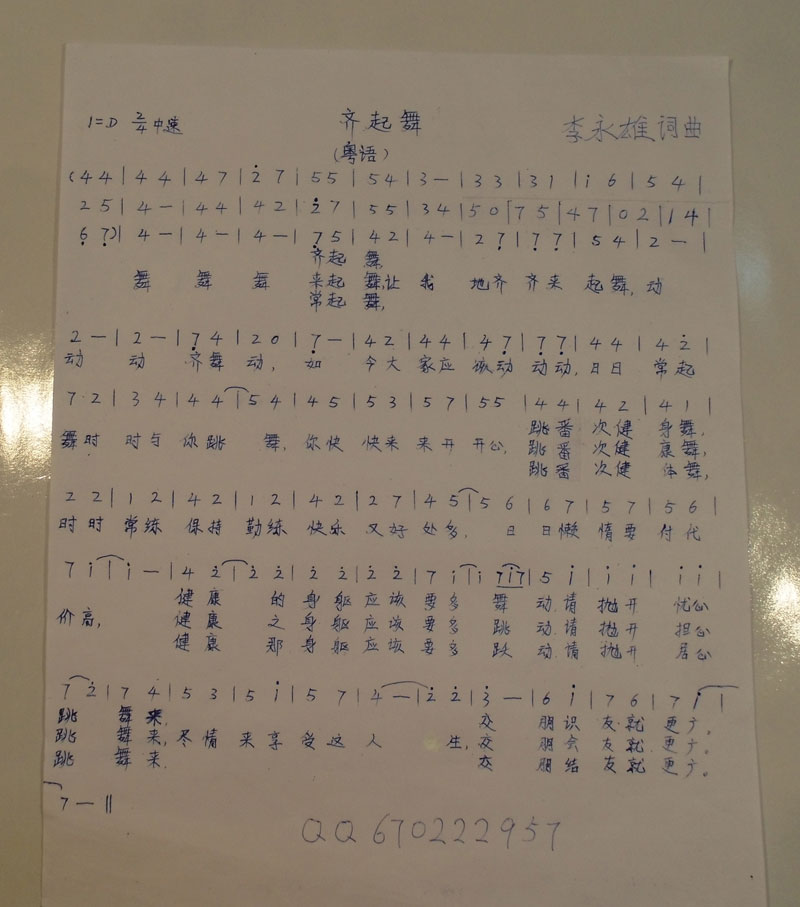 1=D 2/4 中速 齐起舞 李永雄词曲
(粤语)
(4 4 | 4 4 | 4 7 | 2̇ 7 | 5 5 | 5 4 | 3 — | 3 3 | 3 1 | i 6 | 5 4 |
2 5 | 4 — | 4 4 | 4 2 | 2̇ 7 | 5 5 | 3 4 | 5 0 | 7 5 | 4 7 | 0 2 | 1 4 |
6̣ 7̣) | 4 — | 4 — | 4 — | 7̣ 5 | 4 2 | 4 — | 2 7̣ | 7̣ 7̣ | 5 4 | 2 — |
齐起 舞,
舞 舞 舞 来起 舞,让 我 地齐 齐来 起舞,动
常起 舞,
2 — | 2 — | 7̣ 4 | 2 0 | 7̣ — | 4 2 | 4 4 | 4 7̣ | 7̣ 7̣ | 4 4 | 4 2̇ |
动 动 齐舞 动, 如 今大 家应 该动 动动,日日 常起
7 2 | 3 4 | 4 4 | 5 4 | 4 5 | 5 3 | 5 7 | 5 5 | 4 4 | 4 2 | 4 1 |
跳番 次健 身舞,
舞时 时与 你跳 舞,你快 快来 来开 开心, 跳番 次健 康舞,
跳番 次健 体舞,
2 2 | 1 2 | 4 2 | 1 2 | 4 2 | 2 7 | 4 5 | 5 6 | 6 7 | 5 7 | 5 6 |
时时 常练 保持 勤练 快乐 又好 处多, 日 日懒 惰要 付代
7 i | i — | 4 2̇ | 2̇ 2̇ | 2̇ 2̇ | 2̇ 2̇ | 7 i | i 7i7 | 5 i | i i | i i |
健康 的身躯应该要多 舞动.请抛开 忧心
价高, 健康 之身躯应该要多 跳动.请抛开 担心
健康 那身躯应该要多 跃动.请抛开 居心
7 2̇ | 7 4 | 5 3 | 5 i | 5 7 | 4 — | 2̇ 2̇ | 3̇ — | 6 i | 7 6 | 7 i |
跳舞来, 交 朋识友就更广。
跳舞来,尽情来享受这人生,交 朋会友就更广。
跳舞来. 交 朋结友就更广。
7 — ‖
QQ 670222957